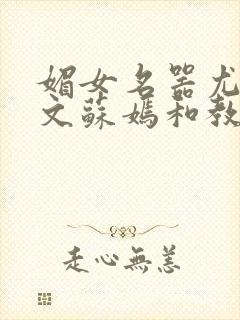 媚女名器尤
文蘇媽和教
走心無恙